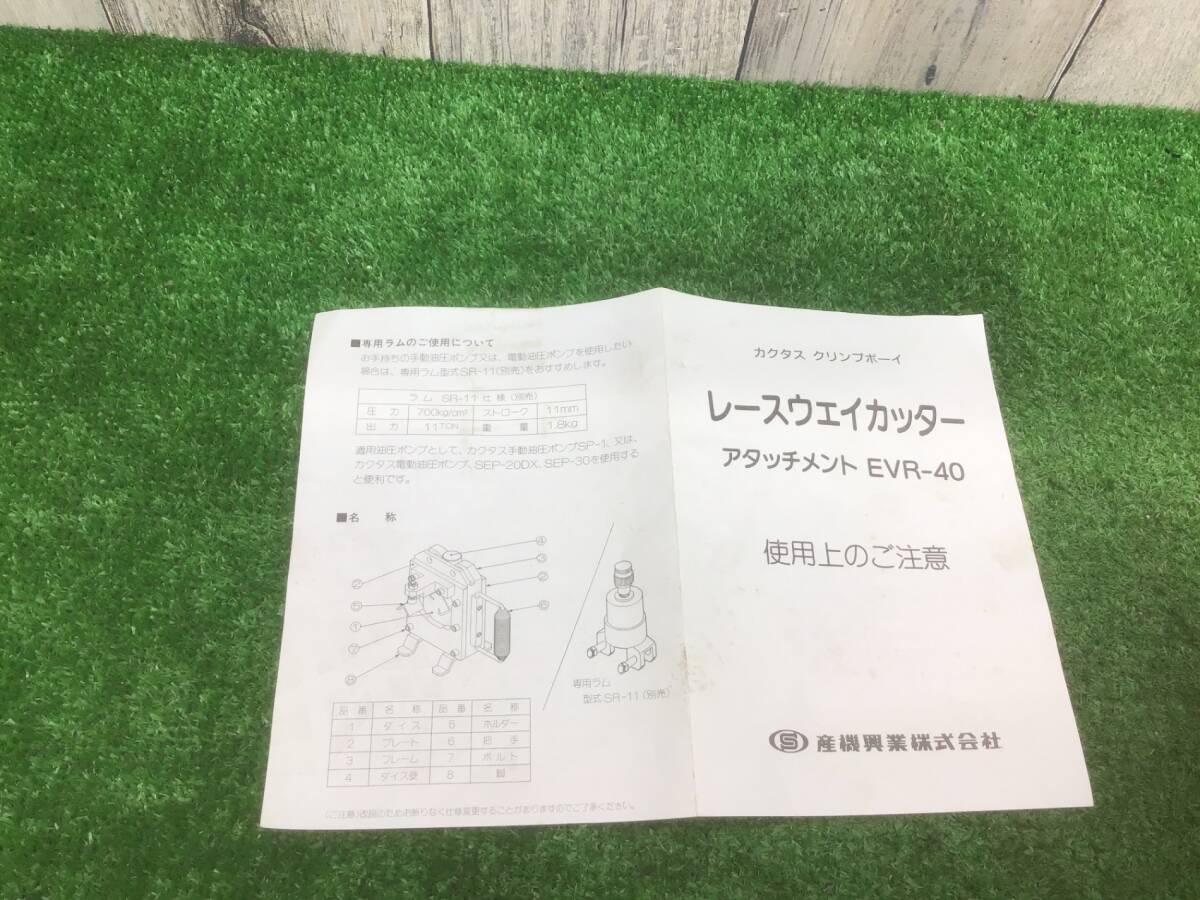 ■専用ラムのご使用について
お手持ちの手動油圧ポンプ又は、電動油圧ポンプを使用したい
場合は、専用ラム型式SR-11(別売)をおすすめします。
ラム SR-11 仕様(別売)
圧力 700kg/cm² ストローク 11mm
出力 11TON 重量 1.8kg
適用油圧ポンプとして、カクタス手動油圧ポンプSP-1、又は、
カクタス電動油圧ポンプ、SEP-20DX、SEP-30を使用する
と便利です。
■名 称
④
③
②
②
⑤
⑥
①
⑦
⑧
専用ラム
型式SR-11(別売)
品番 名称 品番 名称
1 ダイス 5 ホルダー
2 プレート 6 把手
3 フレーム 7 ボルト
4 ダイス受 8 脚
(ご注意)改良のためお断りなく仕様変更することがありますのでご了承ください。
カクタス クリンプボーイ
レースウエイカッター
アタッチメント EVR-40
使用上のご注意
S 産機興業株式会社